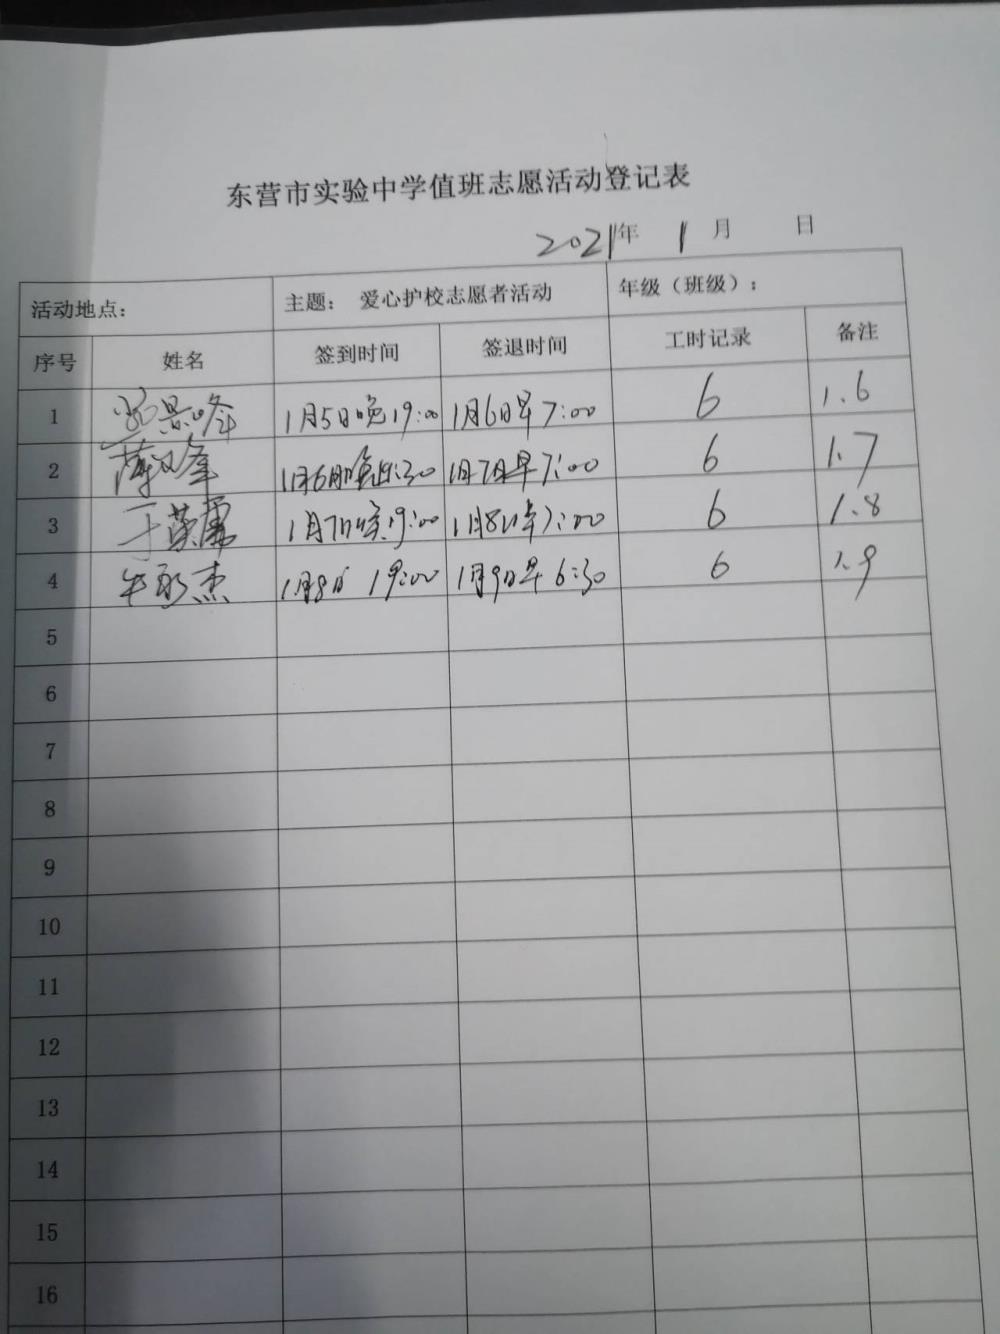 东营市实验中学值班志愿活动登记表
2021年 1月 日
活动地点： 主题： 爱心护校志愿者活动 年级（班级）：
序号 姓名 签到时间 签退时间 工时记录 备注
1 景峰 1月5日晚19:00 1月6日早7:00 6 1.6
2 薛汉峰 1月6日晚 :30 1月7日早7:00 6 1.7
3 于英 1月7日晚19:00 1月8日早7:00 6 1.8
4 牛 杰 1月8日 19:00 1月9日早6:30 6 1.9
5
6
7
8
9
10
11
12
13
14
15
16